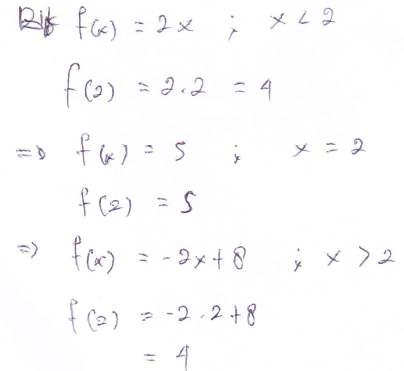 f(x) = 2x ; x < 2
f(2) = 2.2 = 4
=> f(x) = 5 ; x = 2
f(2) = 5
=> f(x) = -2x+8 ; x > 2
f(2) = -2.2+8
= 4